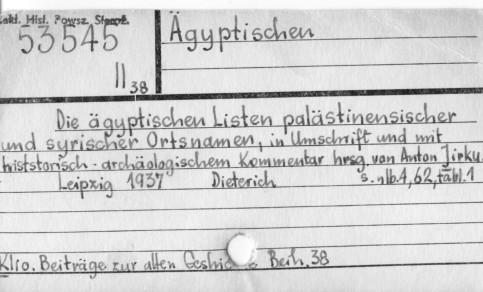 Zakł. Hist. Powsz. Staroż.
53545
II 38
Ägyptischen
Die ägyptischen Listen palästinensischer
und syrischer Ortsnamen, in Umschrift und mit
histstorisch-archäologischem Kommentar hrsg. von Anton Jirku
Leipzig 1937 Dieterich s. nlb. 4, 62, tabl. 1
Klio. Beiträge zur alten Geshic Beih. 38